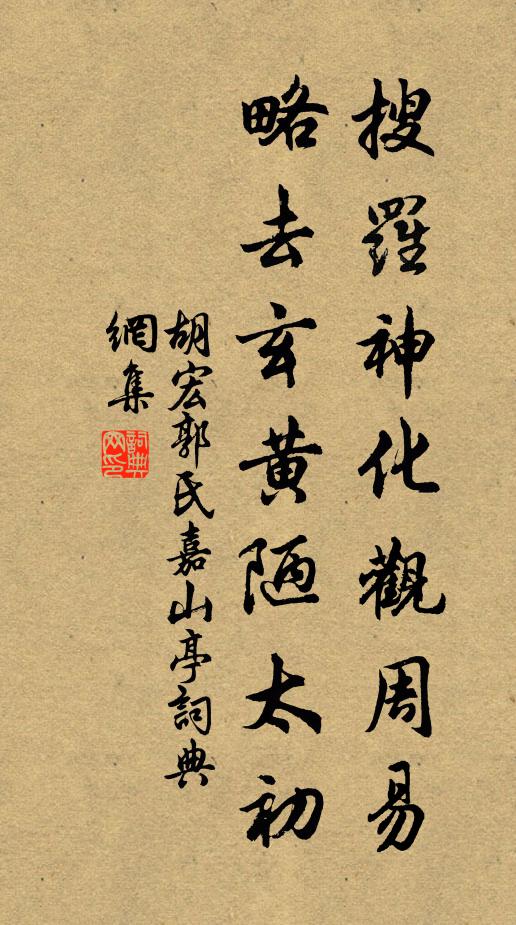 搜羅神化觀周易
略去玄黃陋太初
胡宏郭氏嘉山亭詞典
網集
詞典
網印